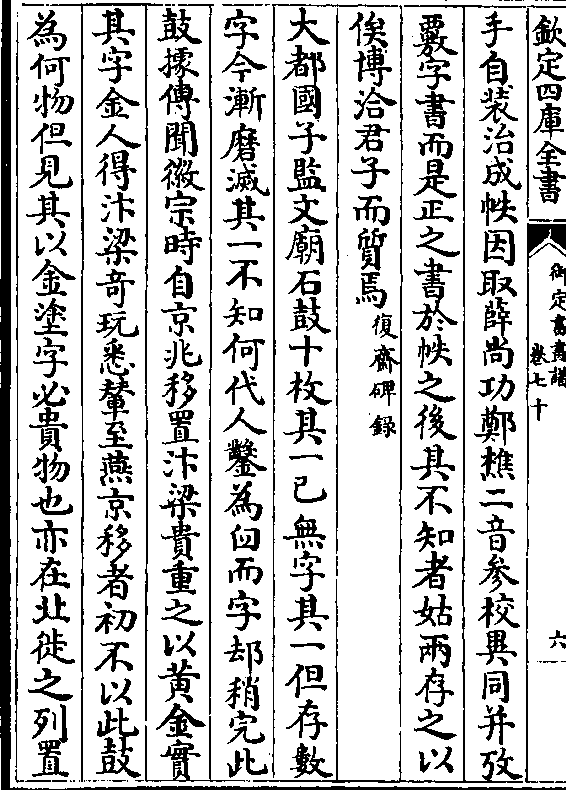 欽定四庫全書
御定書畫譜
卷七十
六
手自裝治成帙因取薛尚功鄭樵二音參校異同并攷
覈字書而是正之書於帙之後其不知者姑兩存之以
俟博洽君子而質焉復齋碑錄
大都國子監文廟石鼓十枚其一已無字其一但存數
字今漸磨滅其一不知何代人鑿為臼而字却稍完此
鼓據傳聞徽宗時自京兆移置汴梁貴重之以黃金實
其字金人得汴梁奇玩悉輦至燕京移者初不以此鼓
為何物但見其以金塗字必貴物也亦在北徙之列置